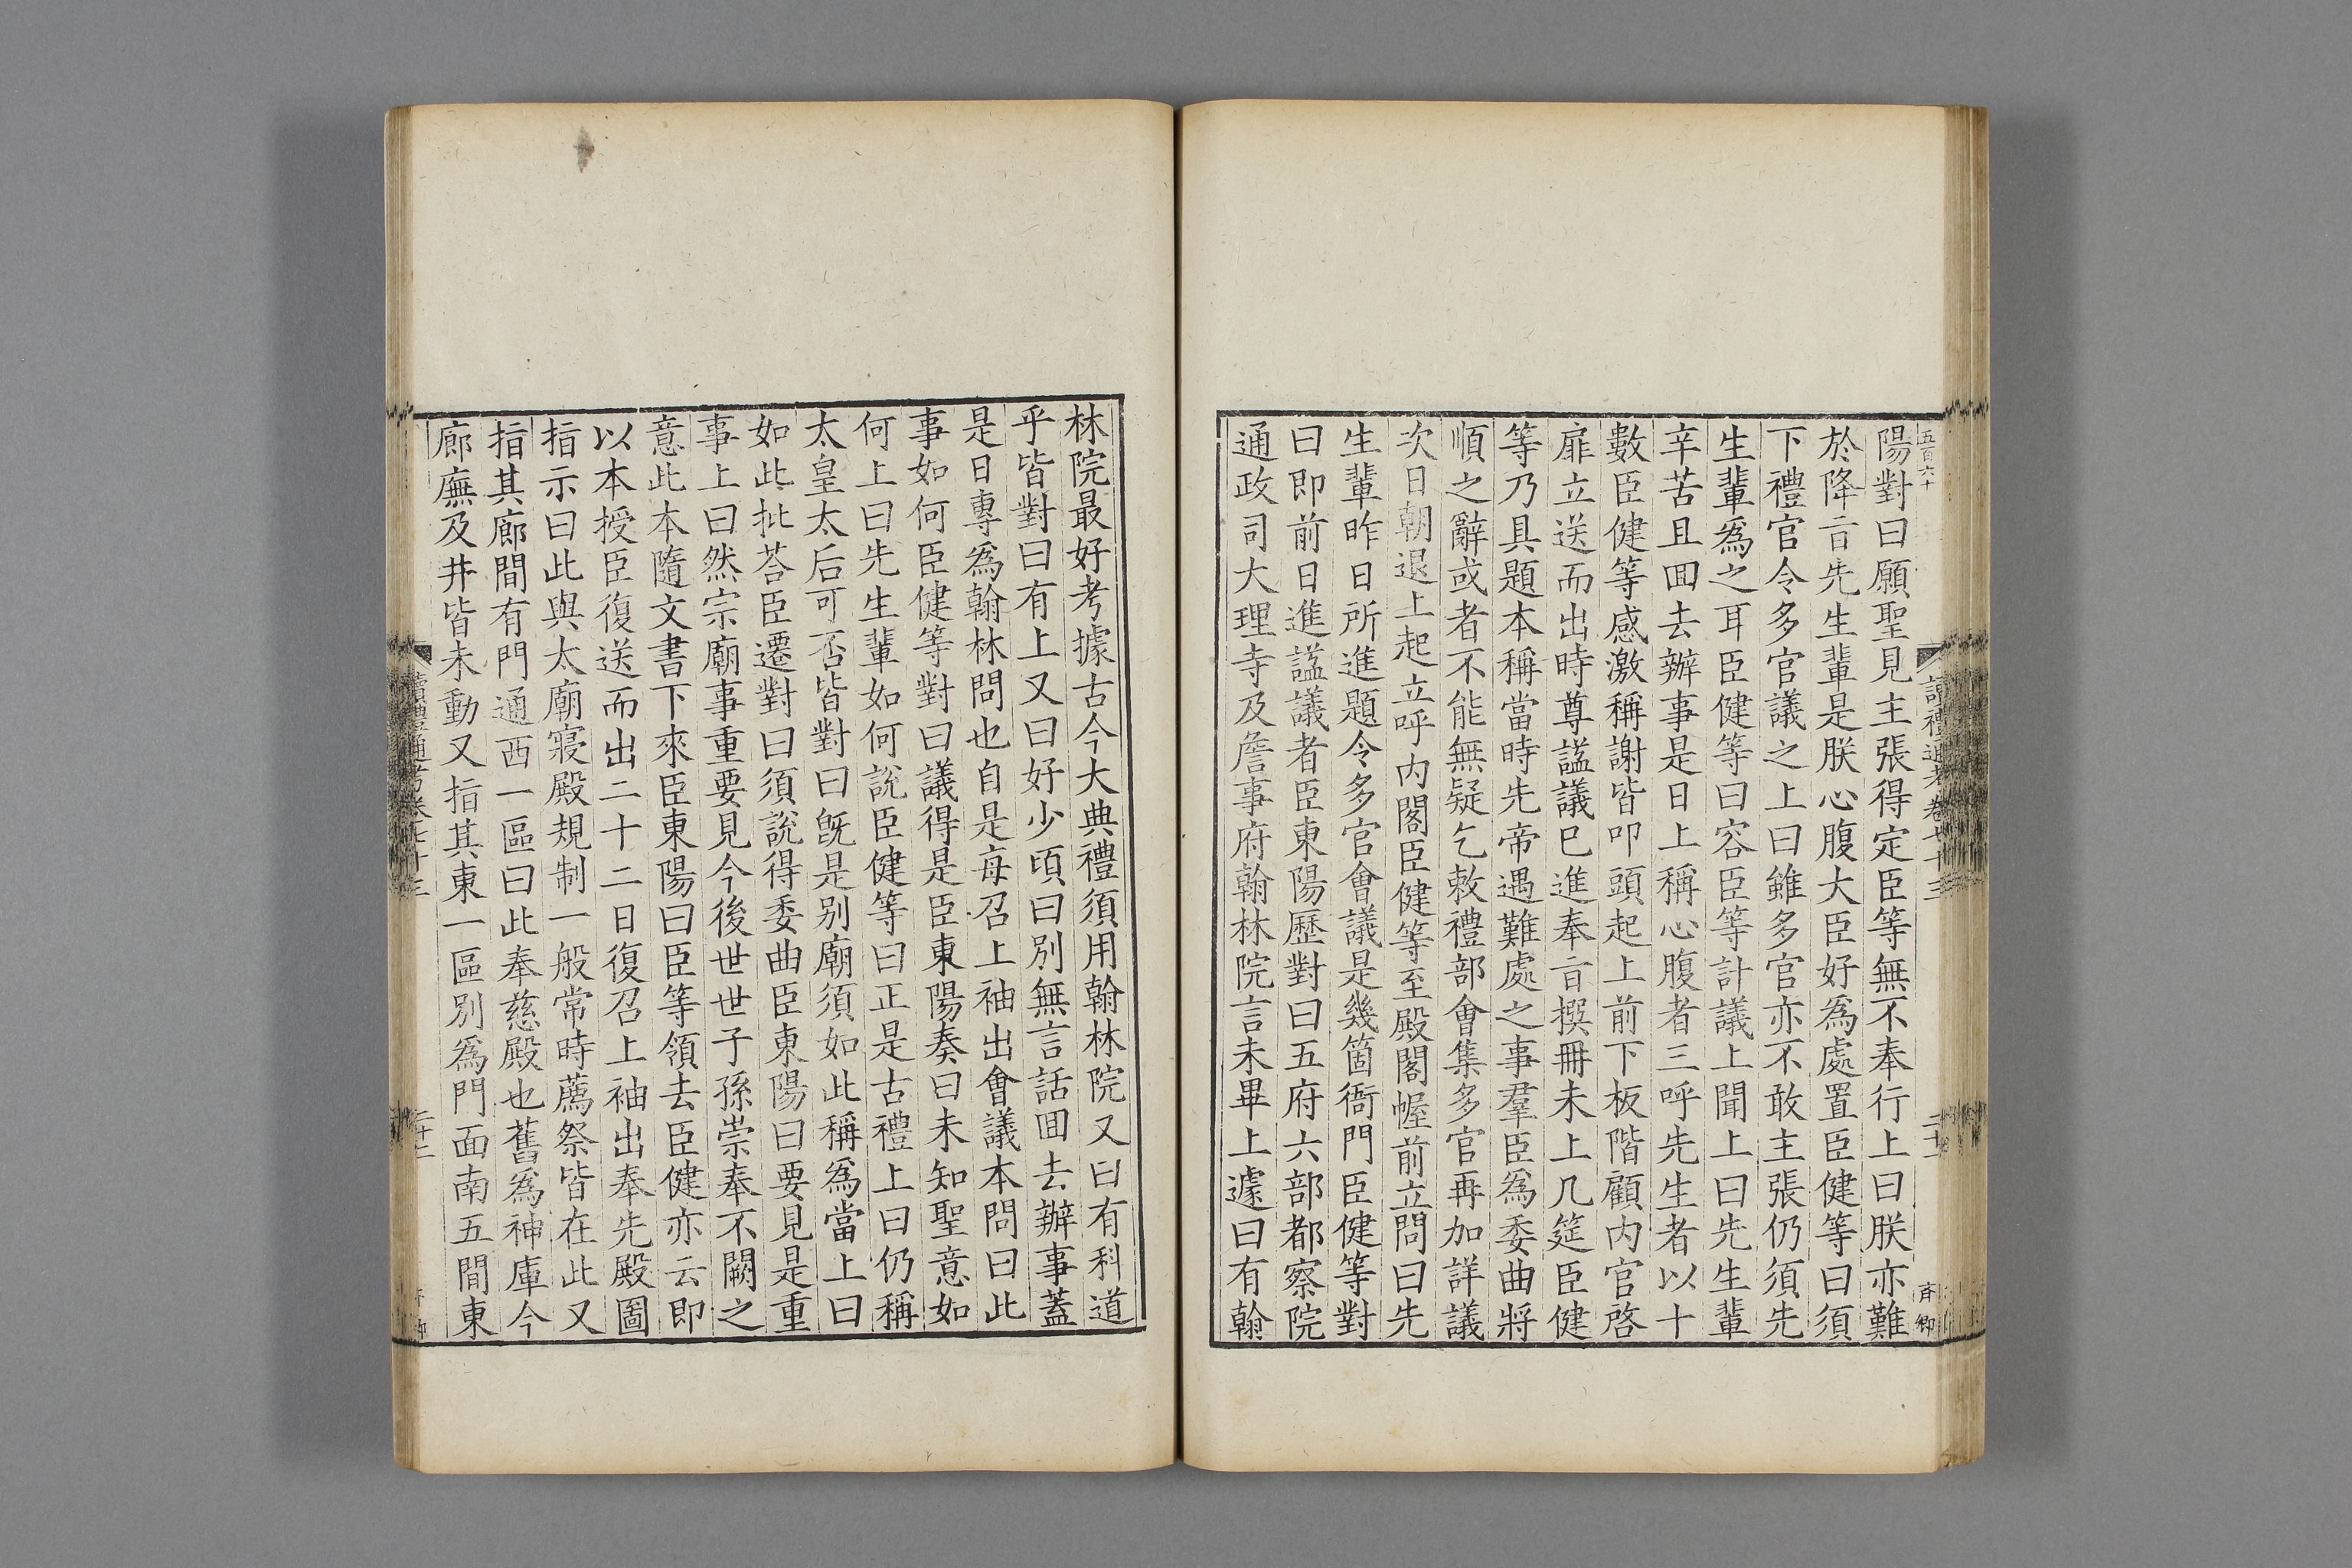 五百六十
讀禮通考卷七十三
陽對曰願聖見主張得定臣等無不奉行上曰朕亦難
於降旨先生輩是朕心腹大臣好爲處置臣健等曰須
下禮官令多官議之上曰雖多官亦不敢主張仍須先
生輩爲之耳臣健等曰容臣等計議上聞上曰先生輩
辛苦且囬去辦事是日上稱心腹者三呼先生者以十
數臣健等感激稱謝皆叩頭起上前下板階顧内官啓
扉立送而出時尊諡議巳進奉旨撰冊未上几筵臣健
等乃具題本稱當時先帝遇難處之事羣臣爲委曲將
順之辭或者不能無疑乞敕禮部會集多官再加詳議
次日朝退上起立呼内閣臣健等至殿閣幄前立問曰先
生輩昨日所進題令多官會議是幾箇衙門臣健等對
曰即前日進諡議者臣東陽歷對曰五府六部都察院
通政司大理寺及詹事府翰林院言未畢上遽曰有翰
林院最好考據古今大典禮須用翰林院又曰有科道
乎皆對曰有上又曰好少頃曰別無言話囬去辦事蓋
是日專爲翰林問也自是每召上袖出會議本問曰此
事如何臣健等對曰議得是臣東陽奏曰未知聖意如
何上曰先生輩如何說臣健等曰正是古禮上曰仍稱
太皇太后可否皆對曰旣是別廟須如此稱爲當上曰
如此批荅臣遷對曰須說得委曲臣東陽曰要見是重
事上曰然宗廟事重要見今後世世子孫崇奉不闕之
意此本隨文書下來臣東陽曰臣等領去臣健亦云即
以本授臣復送而出二十二日復召上袖出奉先殿圖
指示曰此與太廟寢殿規制一般常時薦祭皆在此又
指其廊間有門通西一區曰此奉慈殿也舊爲神庫今
廊廡及井皆未動又指其東一區別爲門面南五間東
讀禮通考卷七十三